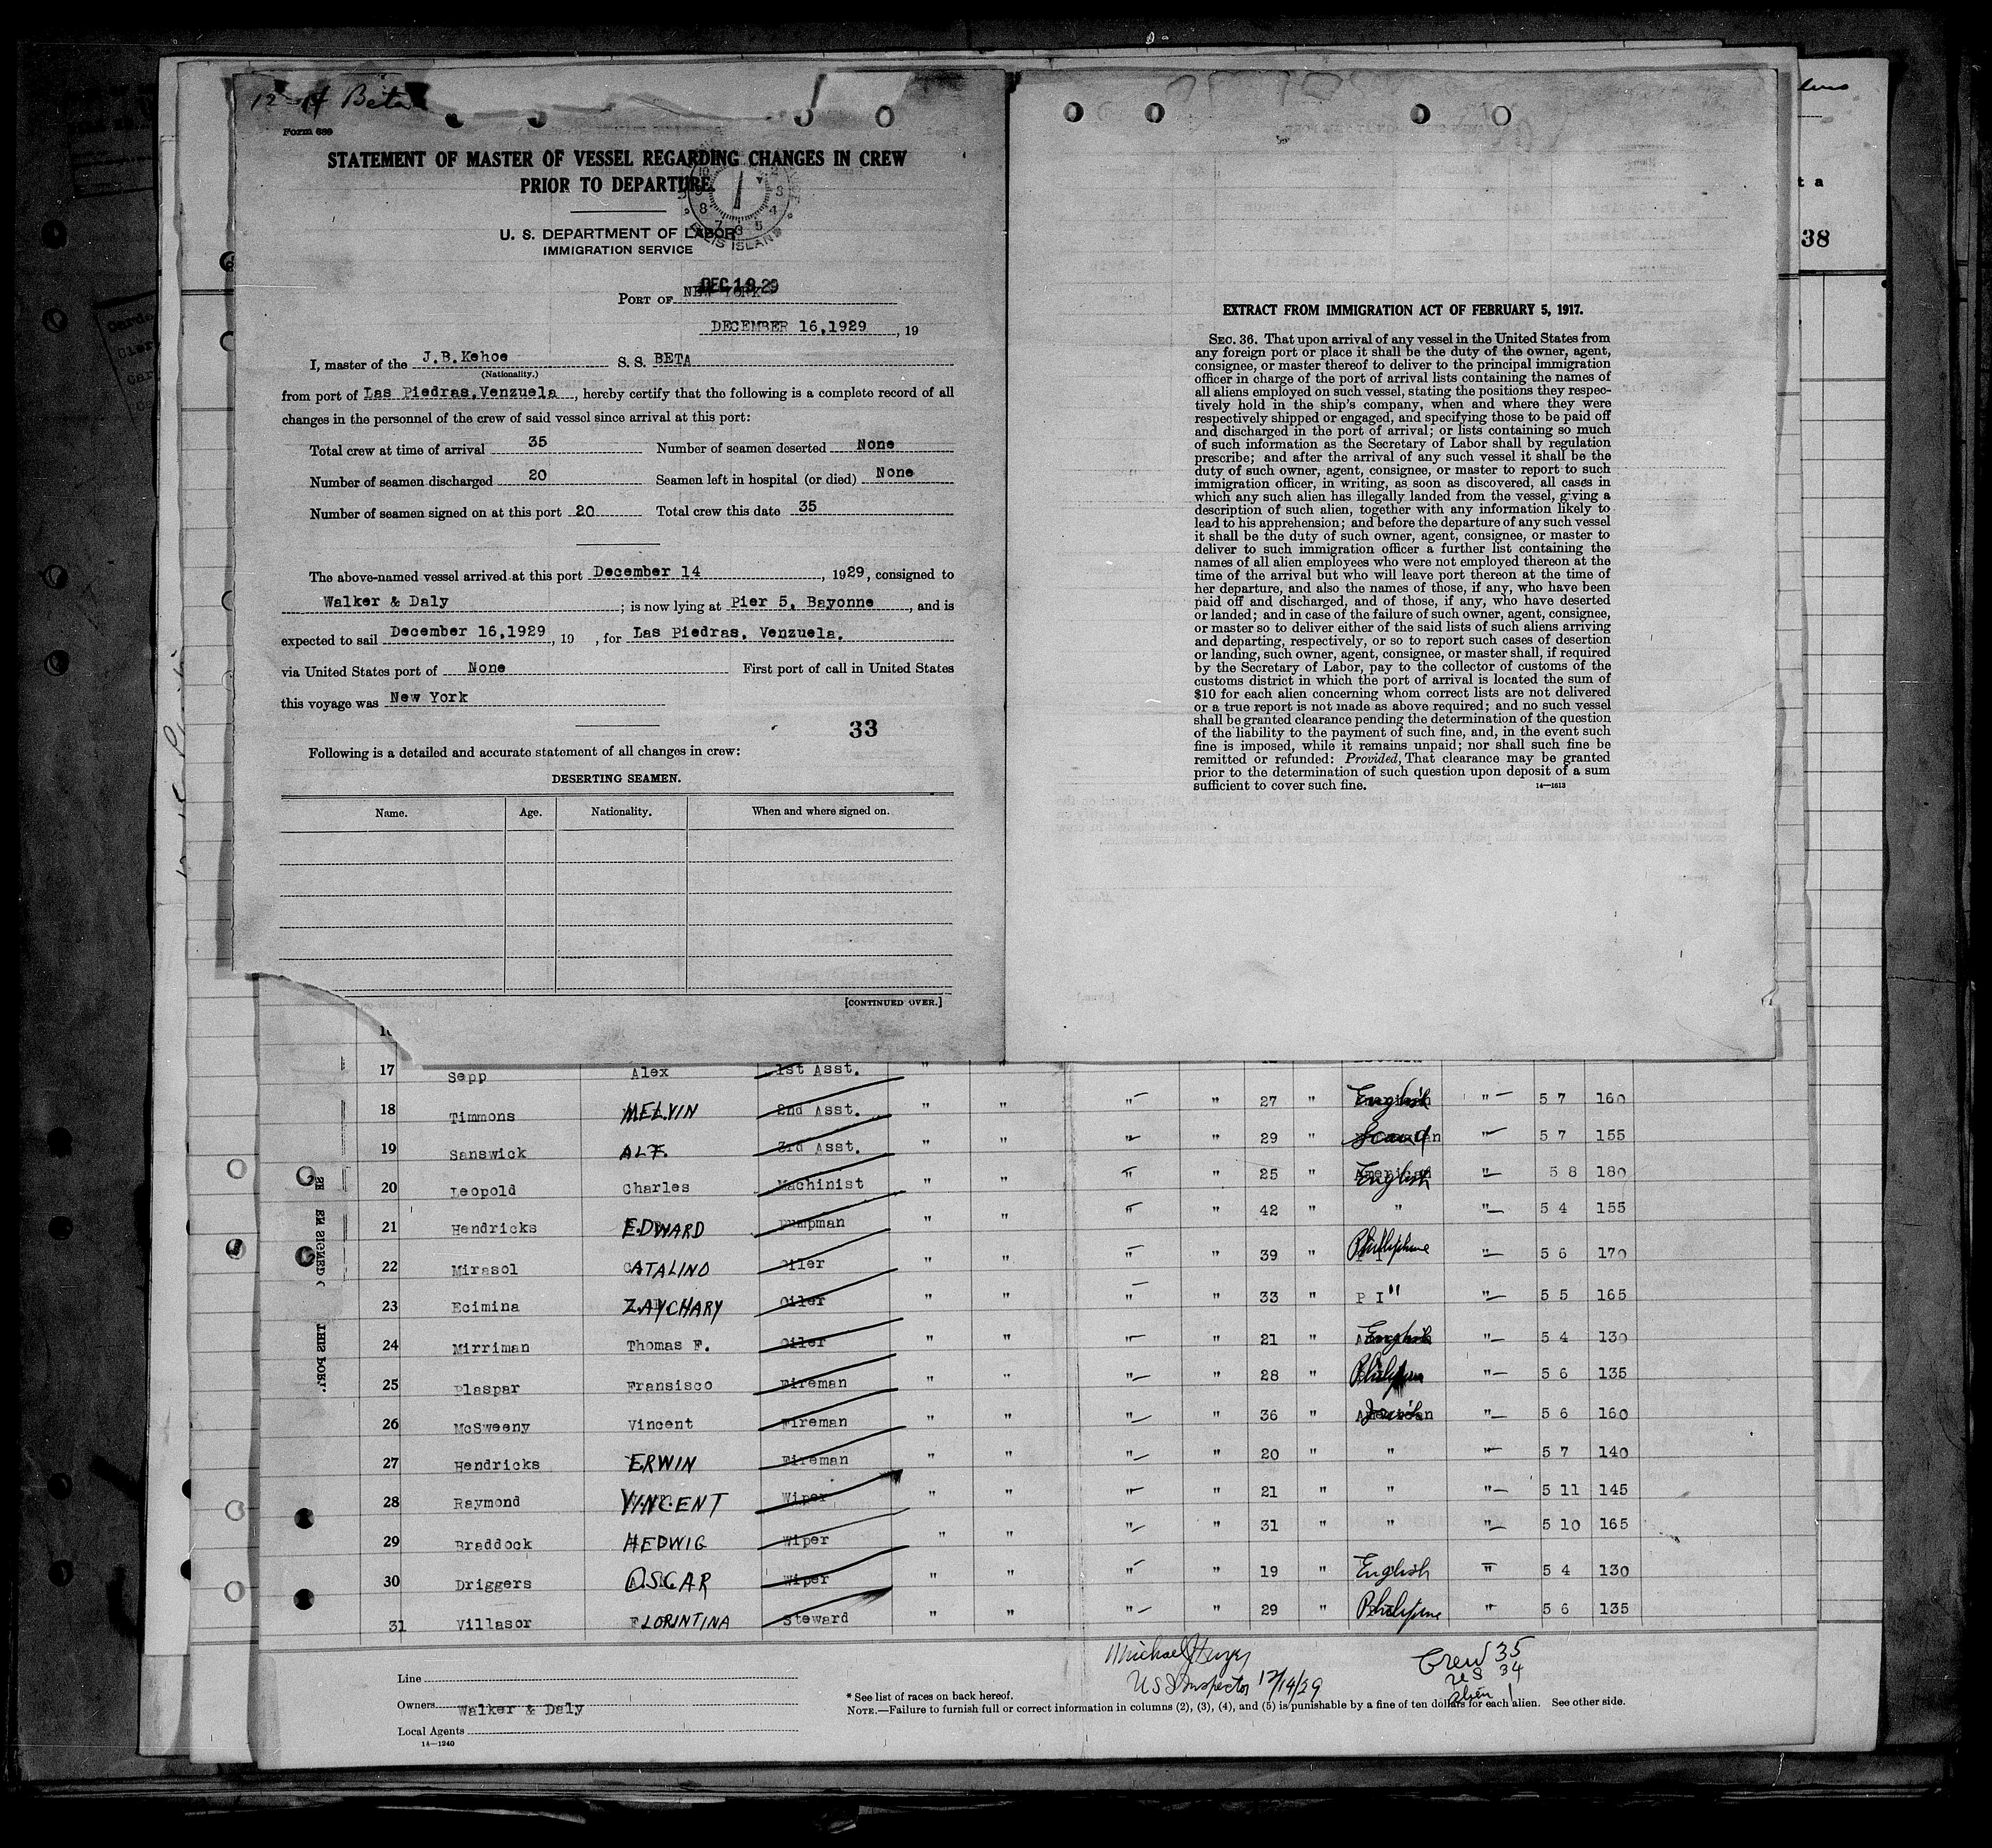 12-14 Beta
Form 689
STATEMENT OF MASTER OF VESSEL REGARDING CHANGES IN CREW
PRIOR TO DEPARTURE.
U. S. DEPARTMENT OF LABOR
IMMIGRATION SERVICE
ELLIS ISLAND
DEC 19 29
PORT OF NEW YORK
DECEMBER 16,1929, 19
I, master of the J.B.Kehoe S. S. BETA
(Nationality.)
from port of Las Piedras,Venzuela, hereby certify that the following is a complete record of all
changes in the personnel of the crew of said vessel since arrival at this port:
Total crew at time of arrival 35 Number of seamen deserted None
Number of seamen discharged 20 Seamen left in hospital (or died) None
Number of seamen signed on at this port 20 Total crew this date 35
The above-named vessel arrived at this port December 14, 1929, consigned to
Walker & Daly; is now lying at Pier 5, Bayonne, and is
expected to sail December 16,1929, 19 , for Las Piedras, Venzuela.
via United States port of None First port of call in United States
this voyage was New York
33
Following is a detailed and accurate statement of all changes in crew:
DESERTING SEAMEN.
Name. Age. Nationality. When and where signed on.
[CONTINUED OVER.]
38
EXTRACT FROM IMMIGRATION ACT OF FEBRUARY 5, 1917.
SEC. 36. That upon arrival of any vessel in the United States from
any foreign port or place it shall be the duty of the owner, agent,
consignee, or master thereof to deliver to the principal immigration
officer in charge of the port of arrival lists containing the names of
all aliens employed on such vessel, stating the positions they respec-
tively hold in the ship's company, when and where they were
respectively shipped or engaged, and specifying those to be paid off
and discharged in the port of arrival; or lists containing so much
of such information as the Secretary of Labor shall by regulation
prescribe; and after the arrival of any such vessel it shall be the
duty of such owner, agent, consignee, or master to report to such
immigration officer, in writing, as soon as discovered, all cases in
which any such alien has illegally landed from the vessel, giving a
description of such alien, together with any information likely to
lead to his apprehension; and before the departure of any such vessel
it shall be the duty of such owner, agent, consignee, or master to
deliver to such immigration officer a further list containing the
names of all alien employees who were not employed thereon at the
time of the arrival but who will leave port thereon at the time of
her departure, and also the names of those, if any, who have been
paid off and discharged, and of those, if any, who have deserted
or landed; and in case of the failure of such owner, agent, consignee,
or master so to deliver either of the said lists of such aliens arriving
and departing, respectively, or so to report such cases of desertion
or landing, such owner, agent, consignee, or master shall, if required
by the Secretary of Labor, pay to the collector of customs of the
customs district in which the port of arrival is located the sum of
$10 for each alien concerning whom correct lists are not delivered
or a true report is not made as above required; and no such vessel
shall be granted clearance pending the determination of the question
of the liability to the payment of such fine, and, in the event such
fine is imposed, while it remains unpaid; nor shall such fine be
remitted or refunded: Provided, That clearance may be granted
prior to the determination of such question upon deposit of a sum
sufficient to cover such fine.
14—1613
17 Sepp Alex 1st Asst. " "
18 Timmons MELVIN 2nd Asst. " " " " 27 " English " 5 7 160
19 Sanswick ALF. 3rd Asst. " " " " 29 " Scand " 5 7 155
20 Leopold Charles Machinist " " " " 25 " English " 5 8 180
21 Hendricks EDWARD Pumpman " " " " 42 " " " 5 4 155
22 Mirasol CATALINO Oiler " " " " 39 " Phillipine " 5 6 170
23 Ecimina ZAYCHARY Oiler " " " " 33 " P I " " 5 5 165
24 Mirriman Thomas F. Oiler " " " " 21 " English " 5 4 130
25 Plaspar Fransisco Fireman " " " " 28 " " 5 6 135
26 McSweeny Vincent Fireman " " " " 36 " " 5 6 160
27 Hendricks ERWIN Fireman " " " " 20 " " " 5 7 140
28 Raymond VINCENT Wiper " " " " 21 " " " 5 11 145
29 Braddock HEDWIG Wiper " " " " 31 " " " 5 10 165
30 Driggers OSCAR Wiper " " " " 19 " English " 5 4 130
31 Villasor FLORINTINA Steward " " " " 29 " Philipine " 5 6 135
Line
Owners Walker & Daly
Local Agents
14—1240
Michael
U S Inspector 12/14/29
Crew 35
US 34
Alien 1
* See list of races on back hereof.
NOTE.—Failure to furnish full or correct information in columns (2), (3), (4), and (5) is punishable by a fine of ten dollars for each alien. See other side.